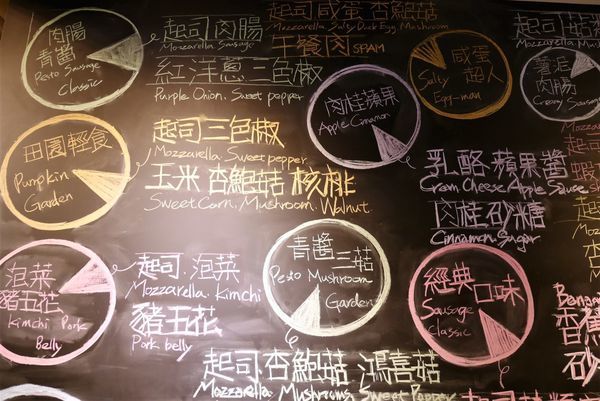 肉腸
青醬
Pesto Sausage
Classic
起司肉腸
Mozzarella Sausage
紅洋蔥三色椒
Purple Onion. Sweet pepper
起司咸蛋杏鮑菇
Mozzarella Salty Duck Egg, Mushroom
午餐肉 SPAM
肉桂蘋果
Apple Cinnamon
咸蛋
超人
Salty
Egg-man
起司
Mozzarella
肉腸
Creamy Sausage
田園輕食
Pumpkin
Garden
起司三色椒
Mozzarella. Sweet pepper
玉米 杏鮑菇 核桃
Sweet Corn, Mushroom, Walnut
乳酪蘋果醬
Cream Cheese, Apple Sauce
肉桂砂糖
Cinnamon. Sugar
泡菜
豬五花
Kimchi Pork
Belly
起司.泡菜
Mozzarella. Kimchi
豬五花
Pork belly
青醬三菇
Pesto Mushroom
Garden
起司.杏鮑菇 鴻喜菇
Mozzarella Mushrooms, Sweet Pepper
經典
口味
Sausage
Classic